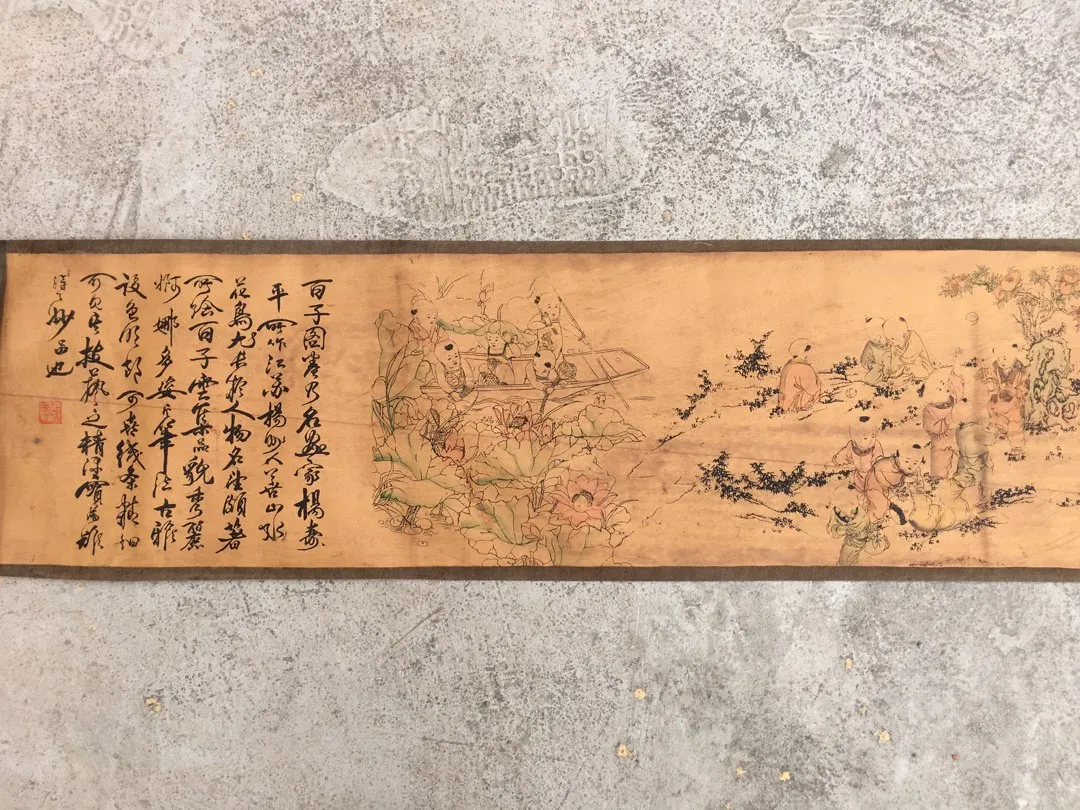 百子图卷乃名画家杨寿
平所作江苏扬州人善山水
花鸟尤长于人物名望颇著
所绘百子云集品貌秀丽
婀娜多姿笔法古雅
设色所可喜线条精细
可见其技艺之精深实为难
得之妙画也